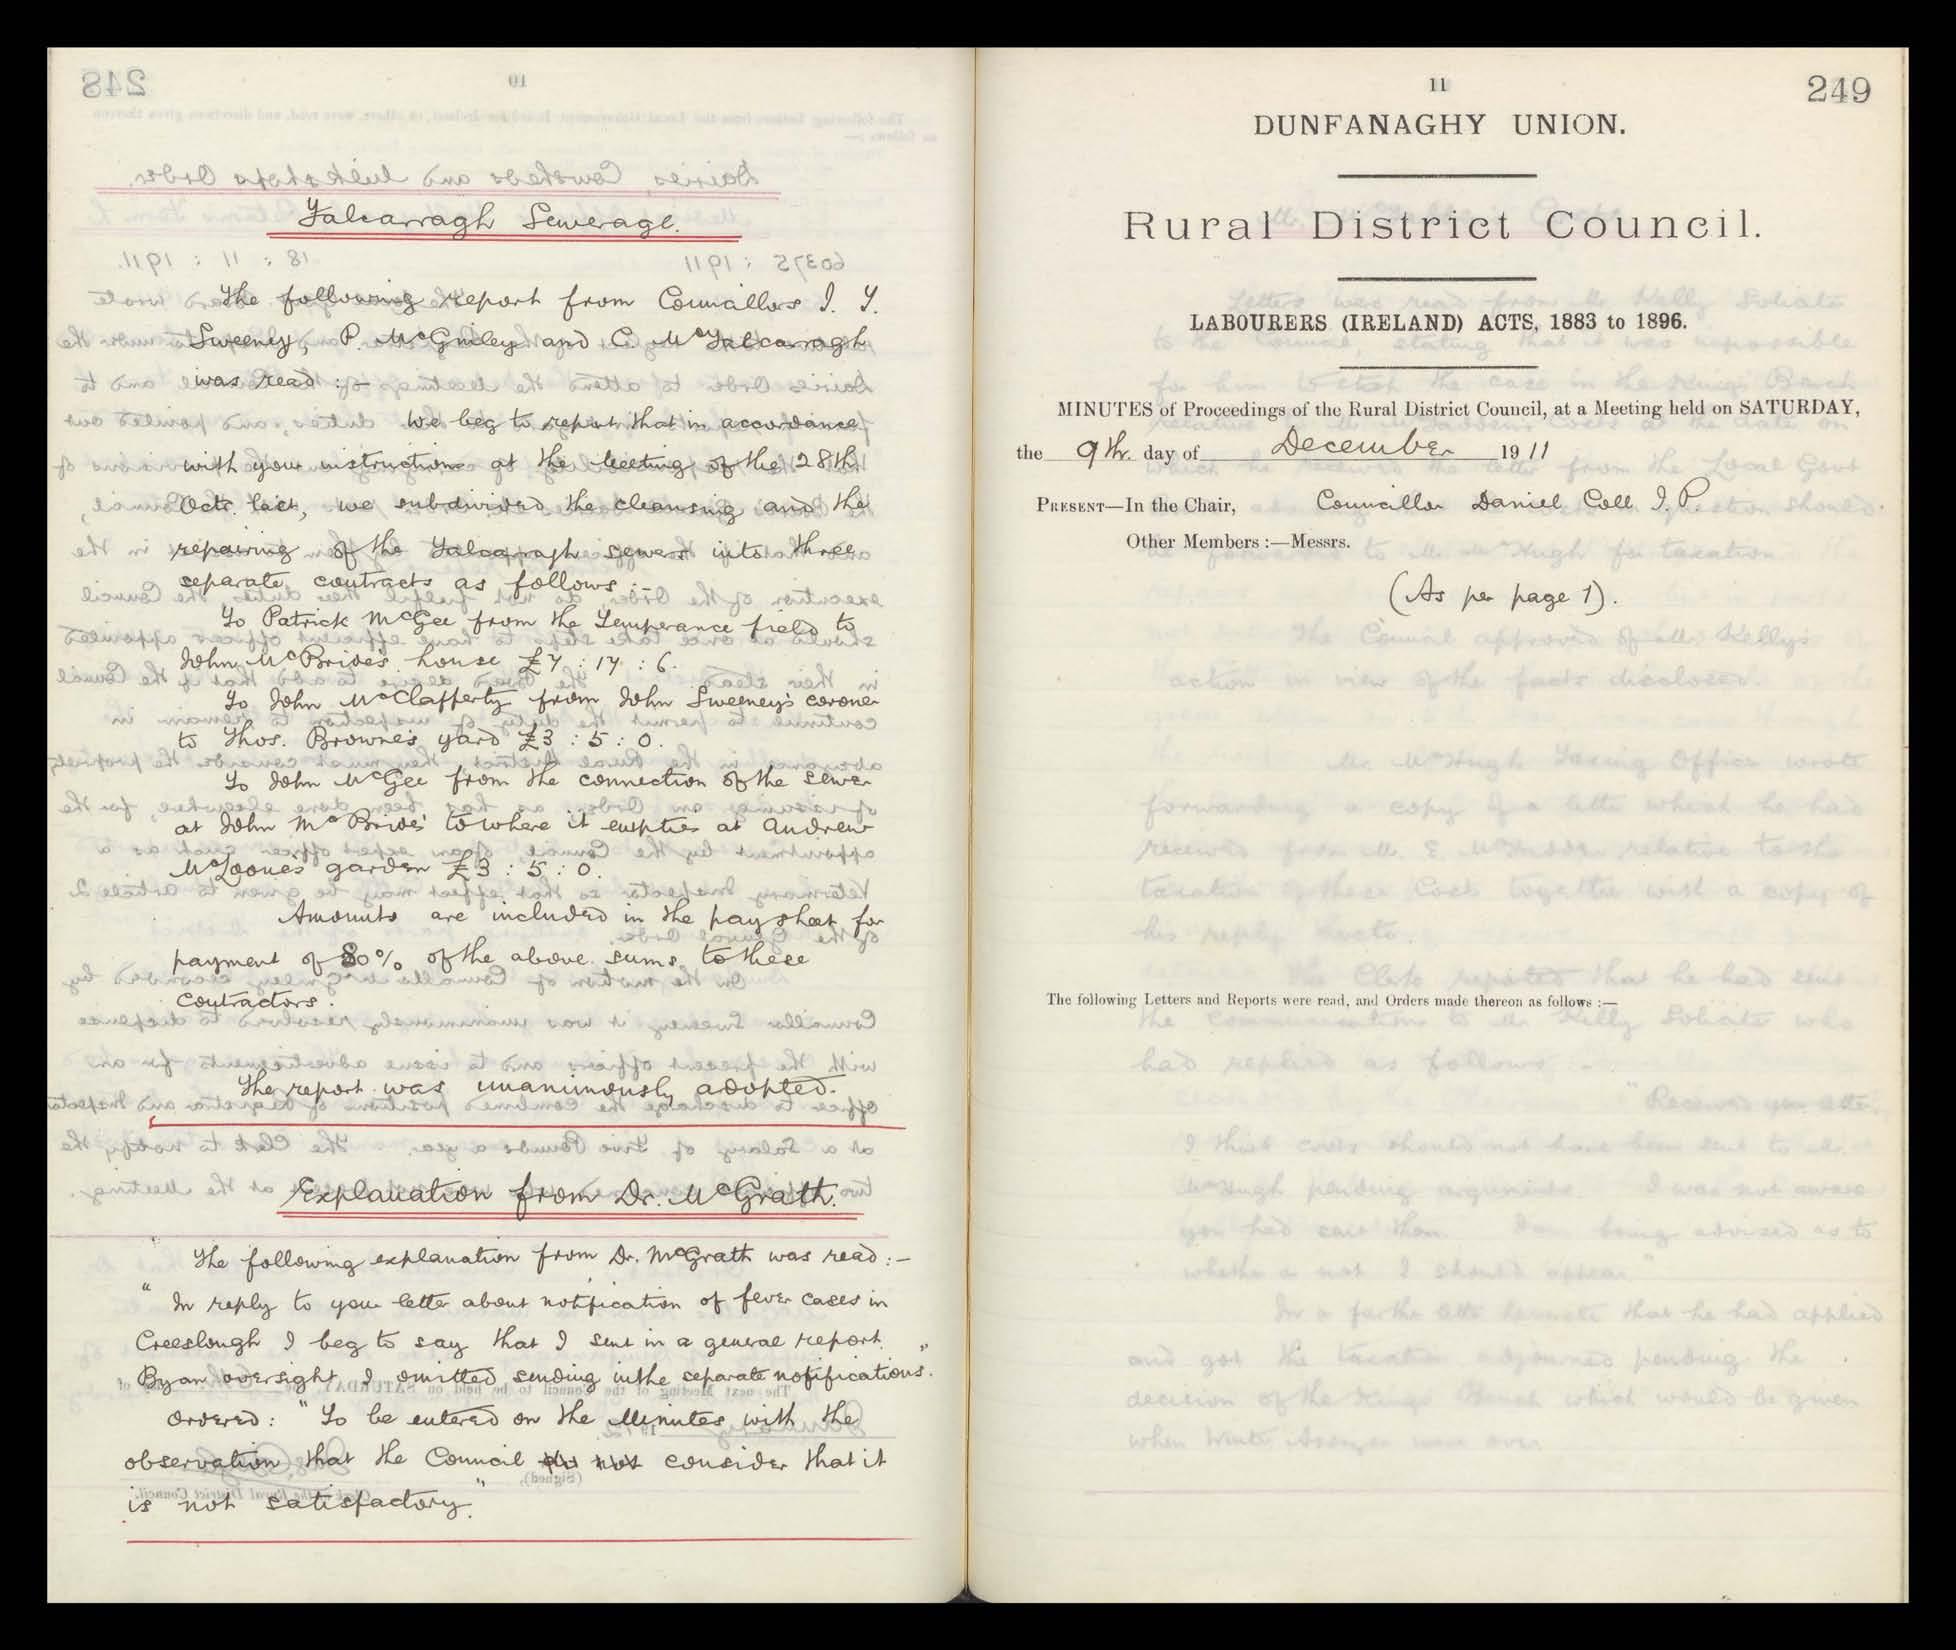 Falcarragh Sewerage.
The following report from Councillors J. Y.
Sweeney, P. McGinley and C. McFalcarragh
was read :-
We beg to report that in accordance
with your instructions at the Meeting of the 28th
Octr. last, we subdivided the cleansing and the
repairing of the Falcarragh sewers into three
separate contracts as follows :-
To Patrick McGee from the Temperance field to
John McBride's house £7 : 17 : 6.
To John McClafferty from John Sweeney's corner
to Thos. Browne's yard £3 : 5 : 0.
To John McGee from the connection of the sewer
at John McBrides' to where it empties at Andrew
McLoone's garden £3 : 5 : 0.
Amounts are included in the pay sheet for
payment of 80% of the above sums to these
contractors.
The report was unanimously adopted.
Explanation from Dr. McGrath.
The following explanation from Dr. McGrath was read :-
"In reply to your letter about notification of fever cases in
Creeslough I beg to say that I sent in a general report.
By an oversight I omitted sending in the separate notifications".
Ordered: "To be entered on the Minutes with the
observation that the Council consider that it
is not satisfactory."
11
249
DUNFANAGHY UNION.
Rural District Council.
LABOURERS (IRELAND) ACTS, 1883 to 1896.
MINUTES of Proceedings of the Rural District Council, at a Meeting held on SATURDAY,
the 9th. day of December 1911
PRESENT—In the Chair, Councillor Daniel Coll J.P.
Other Members :—Messrs.
(As per page 1).
The following Letters and Reports were read, and Orders made thereon as follows :—